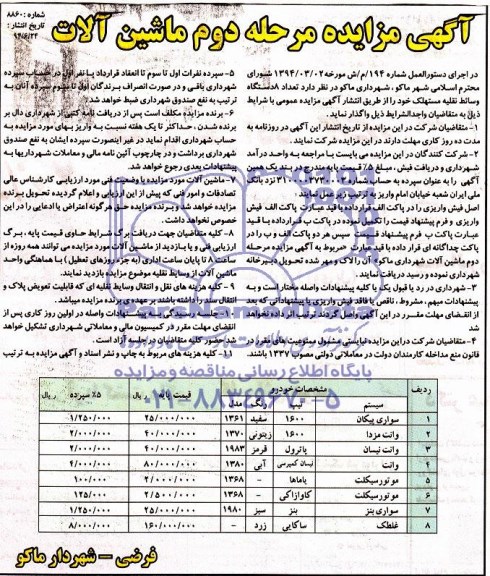 شماره : ۸۸۶۰
تاریخ انتشار :
۹۴/۶/۲۴
آگهی مزایده مرحله دوم ماشین آلات
در اجرای دستورالعمل شماره ۱۹۴/م/ش مورخه ۱۳۹۴/۰۳/۰۲ شورای
محترم اسلامی شهر ماکو ، شهرداری ماکو در نظر دارد تعداد ۸دستگاه
وسائط نقلیه مستهلک خود را از طریق انتشار آگهی مزایده عمومی با شرایط
ذیل به متقاضیان واجدالشرایط ذیل واگذار نماید.
۱- متقاضیان شرکت در این مزایده از تاریخ انتشار این آگهی در روزنامه به
مدت ده روز کاری مهلت دارند در این مزایده شرکت نمایند.
۲- شرکت کنندگان در این مزایده می بایست با مراجعه به واحد درآمد
شهرداری و دریافت فیش ، مبلغ ۵٪ قیمت پایه مندرج در بند یک همین
آگهی را به عنوان سپرده به حساب شماره نزد بانک
ملی ایران شعبه خیابان امام واریز به ترتیب زیر عمل نمایند.
اصل فیش واریزی را در پاکت الف قرار داده با قید عبارت پاکت الف فیش
واریزی و فرم پیشنهاد قیمت را تکمیل نموده در پاکت ب قرار داده با قید
عبارت پاکت ب فرم پیشنهاد قیمت سپس هر دو پاکت الف و ب را در
پاکت جداگانه ای قرار داده با قید عبارت «مربوط به آگهی مزایده مرحله
دوم ماشین آلات شهرداری ماکو» آن را لاک و مهر شده تحویل دبیرخانه
شهرداری نموده و رسید دریافت نمایند.
۳- شهرداری در رد یا قبول یک یا کلیه پیشنهادات واصله مختار است و به
پیشنهادات مبهم ، مشروط ، ناقص یا فاقد فیش واریزی یا پیشنهاداتی که بعد
از انقضای مهلت مقرر در این آگهی واصل گردند ترتیب اثر داده نخواهد
شد.
۴- متقاضیان شرکت در این مزایده نبایستی مشمول ممنوعیت های مقرر در
قانون منع مداخله کارمندان دولت در معاملاتی دولتی مصوب ۱۳۳۷ باشند.
۵- سپرده نفرات اول تا سوم تا انعقاد قرارداد با نفر اول در حساب سپرده
شهرداری باقی و در صورت انصراف برندگان اول تا سوم سپرده آنان به
ترتیب به نفع صندوق شهرداری ضبط خواهد شد.
۶- برنده مزایده مکلف است پس از دریافت نامه کتبی از شهرداری دال بر
برنده شدن ، حداکثر تا یک هفته نسبت به واریز بهای مورد مزایده به
حساب شهرداری اقدام نماید در غیر اینصورت سپرده ایشان به نفع صندوق
شهرداری برداشت و در چارچوب آئین نامه مالی و معاملات شهرداریها به
پیشنهادات بعدی رجوع خواهد شد.
۷- ماشین آلات مورد مزایده با وضعیت فنی مورد ارزیابی کارشناس عالی
تصادفات و امور فنی که پیش از این ارزیابی و اعلام گردیده تحویل برنده
مزایده خواهد شد و برنده مزایده حق هرگونه اعتراض یا ادعایی را در این
خصوص نخواهد داشت.
۸- کلیه متقاضیان جهت دریافت برگ شرایط حاوی قیمت پایه ، برگ
ارزیابی فنی و یا بازدید از ماشین آلات مورد مزایده می توانند همه روزه از
ساعت ۸ تا پایان ساعت اداری (به جزء روزهای تعطیل) با هماهنگی واحد
ماشین آلات از وسایط نقلیه موضوع مزایده بازدید نمایند.
۹- کلیه هزینه های نقل و انتقال وسایط نقلیه ای که قابلیت تعویض پلاک و
انتقال سند را داشته باشند بر عهده ی برنده مزایده میباشد.
۱۰- جلسه رسیدگی به پیشنهادات واصله در اولین روز کاری پس از
انقضای مهلت مقرر در کمیسیون مالی و معاملاتی شهرداری تشکیل خواهد
شد حضور کلیه متقاضیان در جلسه آزاد است.
۱۱- کلیه هزینه های مربوط به چاپ و نشر اسناد و آگهی مزایده به ترتیب
پایگاه اطلاع رسانی مناقصه و مزایده
۰۲۱-۸۸۳۴۹۶۷۰-۵
ردیف مشخصات خودرو قیمت پایه / ریال ۵٪ سپرده / ریال
سیستم تیپ رنگ مدل
۱ سواری پیکان ۱۶۰۰ سفید ۱۳۶۱ ۲۵/۰۰۰/۰۰۰ ۱/۲۵۰/۰۰۰
۲ وانت مزدا ۱۶۰۰ زیتونی ۱۳۷۰ ۴۰/۰۰۰/۰۰۰ ۲/۰۰۰/۰۰۰
۳ وانت نیسان پاترول قرمز ۱۹۸۳ ۴۰/۰۰۰/۰۰۰ ۲/۰۰۰/۰۰۰
۴ وانت نیسان کمپرسی آبی ۱۳۸۰ ۸۰/۰۰۰/۰۰۰ ۴/۰۰۰/۰۰۰
۵ موتورسیکلت یاماها - ۱۳۶۸ ۲/۰۰۰/۰۰۰ ۱۰۰/۰۰۰
۶ موتورسیکلت کاوازاکی - ۱۳۶۸ ۲/۵۰۰/۰۰۰ ۱۲۵/۰۰۰
۷ سواری بنز بنز سبز ۱۹۸۰ ۲۵/۰۰۰/۰۰۰ ۱/۲۵۰/۰۰۰
۸ غلطک ساکایی زرد - ۱۶۰/۰۰۰/۰۰۰ ۸/۰۰۰/۰۰۰
فرضی - شهردار ماکو